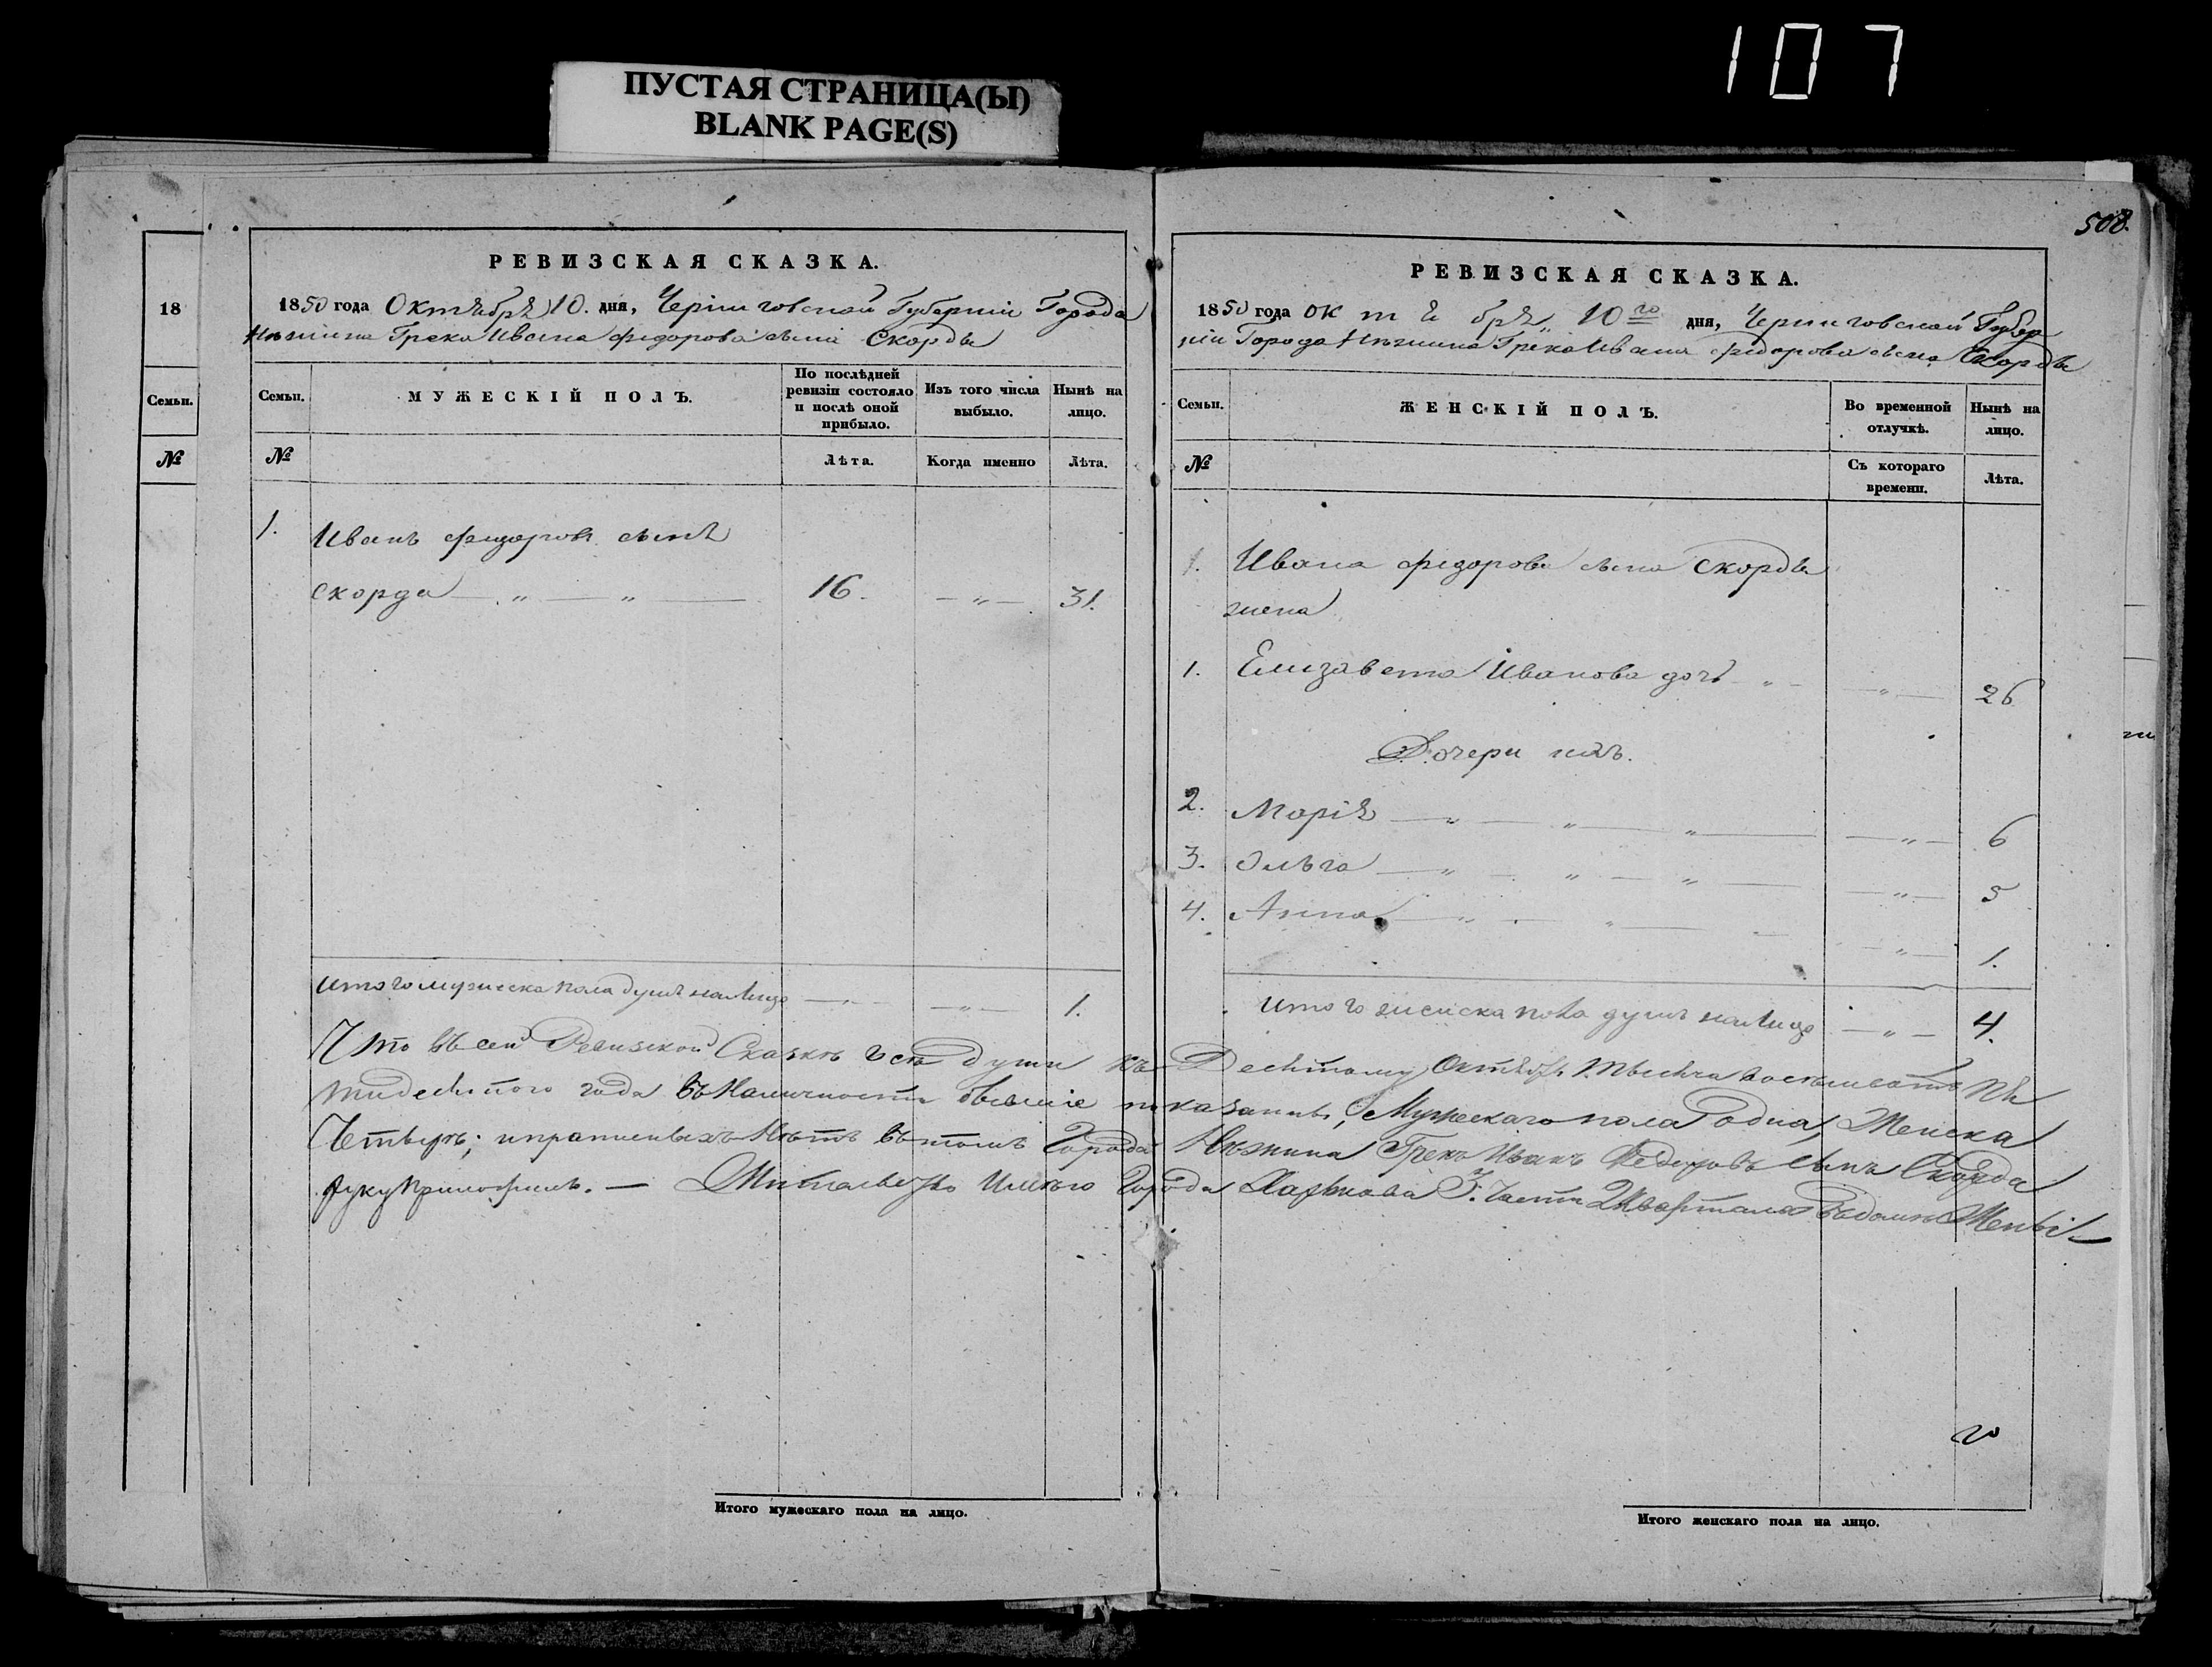 107
ПУСТАЯ СТРАНИЦА(Ы)
BLANK PAGE(S)
18
Семьи.
№
РЕВИЗСКАЯ СКАЗКА.
1850 года Октября 10. дня, Черниговской Губерніи Города
Нежина Грека Ивана Федорова сына Скорды
Семьи.
МУЖЕСКІЙ ПОЛЪ.
По послѣдней ревизіи состояло и послѣ оной прибыло.
Изъ того числа выбыло.
Нынѣ на лицо.
№
Лѣта.
Когда именно
Лѣта.
1. Иванъ Федоровъ сынъ
Скорда — „ — „ — 16. — „ — 31.
итого мужеска пола душъ налицо — „ — 1.
Итого мужескаго пола на лицо.
508.
РЕВИЗСКАЯ СКАЗКА.
1850 года октября 10го дня, Черниговской Губер
ніи Города Нежина Грека Ивана Федорова сына Скорды
Семьи.
ЖЕНСКІЙ ПОЛЪ.
Во временной отлучкѣ.
Нынѣ на лицо.
№
Съ котораго времени.
Лѣта.
1. Ивана Федорова сына Скорды
жена
1. Елизавета Иванова дочь „ — „ — 26
Дочери ихъ.
2. Марія — „ — „ — „ — „ — 6
3. Ольга — „ — „ — „ — „ — 5
4. Анна — „ — „ — „ — 1.
итого женска пола душъ налицо — „ — 4.
Что въ сей Ревизской Сказкѣ всѣ души къ Десятому Октября мѣсяца восемьсотъ пя
тидесятого года въ Наличности бывшіе показаны, Мужескаго пола одна, Женска
Четыре; и прописныхъ Нѣтъ въ томъ Города Нѣжина Грекъ Иванъ Федоровъ сынъ Скорда
руку приложилъ. — Жительство Имѣю Города Харькова 3. Части 2 Квартала въ домѣ Жены
Итого женскаго пола на лицо.